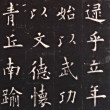 逮乎立年
始以武功
以文德懷
青丘南踰